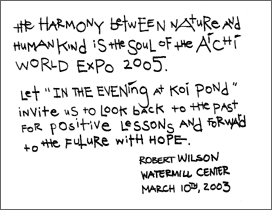 the HARMONY between NAture AND
HUMAN KIND is the SOUL OF the AICHI
WORLD EXPO 2005.
Let "IN the EVENING at KOI POND"
invite us to Look bAck to the PAST
FOR positive LESSONS AND FORWARD
to the FUTURE WITH HOPE.
ROBERT WILSON
WATERMILL CENTER
MARCH 10TH, 2003